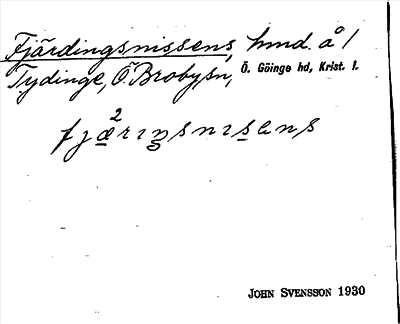 Fjärdingsnissens, hmd. å /
Tydinge, Ö. Broby sn, Ö. Göinge hd, Krist. l.
fjæ²rɪŋsnɪsens
JOHN SVENSSON 1930